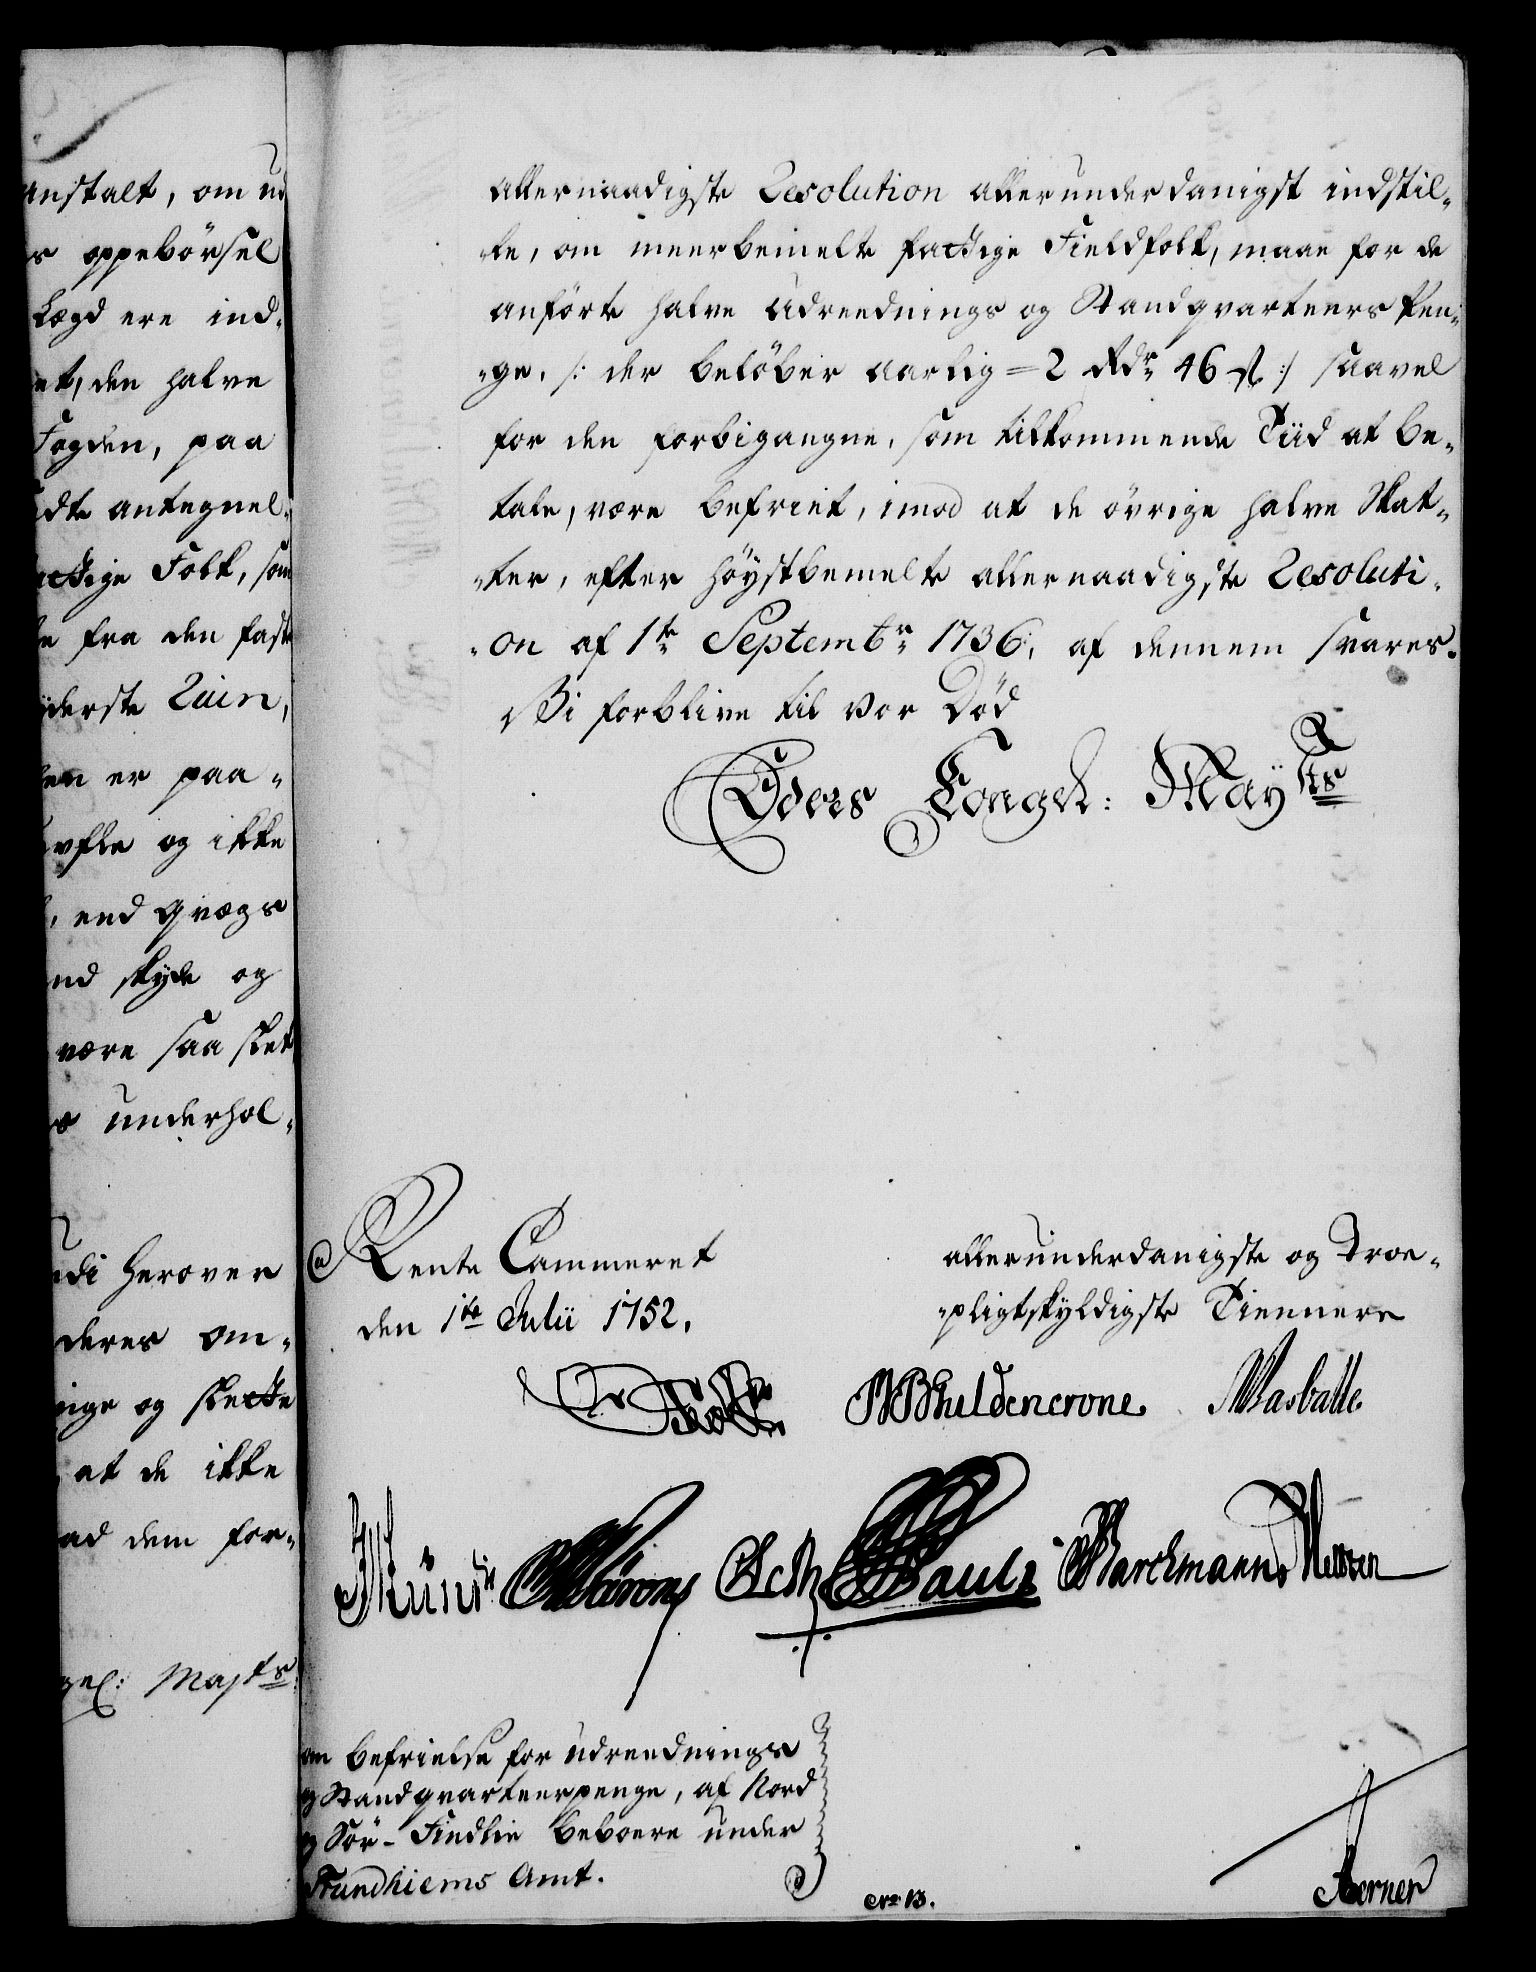 anstalt, om ud
s oppebörsel
Lægd ere ind-
et, den halve
Fogden, paa
antegnel-
attige Folk, som
fra den fast
yderste Ruin,
er paa-
og ikke
, end qvægs
skyde og
være saa slet
s underhol-
herover
deres om-
ringe og slette
at de ikke
ad dem for-
gel: Majts
allernaadigste Resolution allerunderdanigst indstil-
-le, om meerbemelte fattige Fieldfolk, maae for de
anförte halve Udreednings og Standqvarteers Pen-
-ge, /: der belöber aarlig = 2 Rdr 46 s :/ saavel
for den forbigangne, som tilkommende Tiid at be-
tale, være befriet, imod at de övrige halve Skat-
-ter, efter höystbemelte allernaadigste Resoluti-
-on af 1te Septembr 1736, af dennem svares.
Vi forblive til vor Död
Eders Kongel: Mayts
Rente Cammeret
den 1te Julii 1752.
allerunderdanigste og Troe-
-pligtskyldigste Tiennere
Guldencrone
Pauli Barchmann
om befrielse for udreednings
og Standqvarteerpenge, af Nord
og Sör- Findlie beboere under
Trundhiems Amt.
No 13.